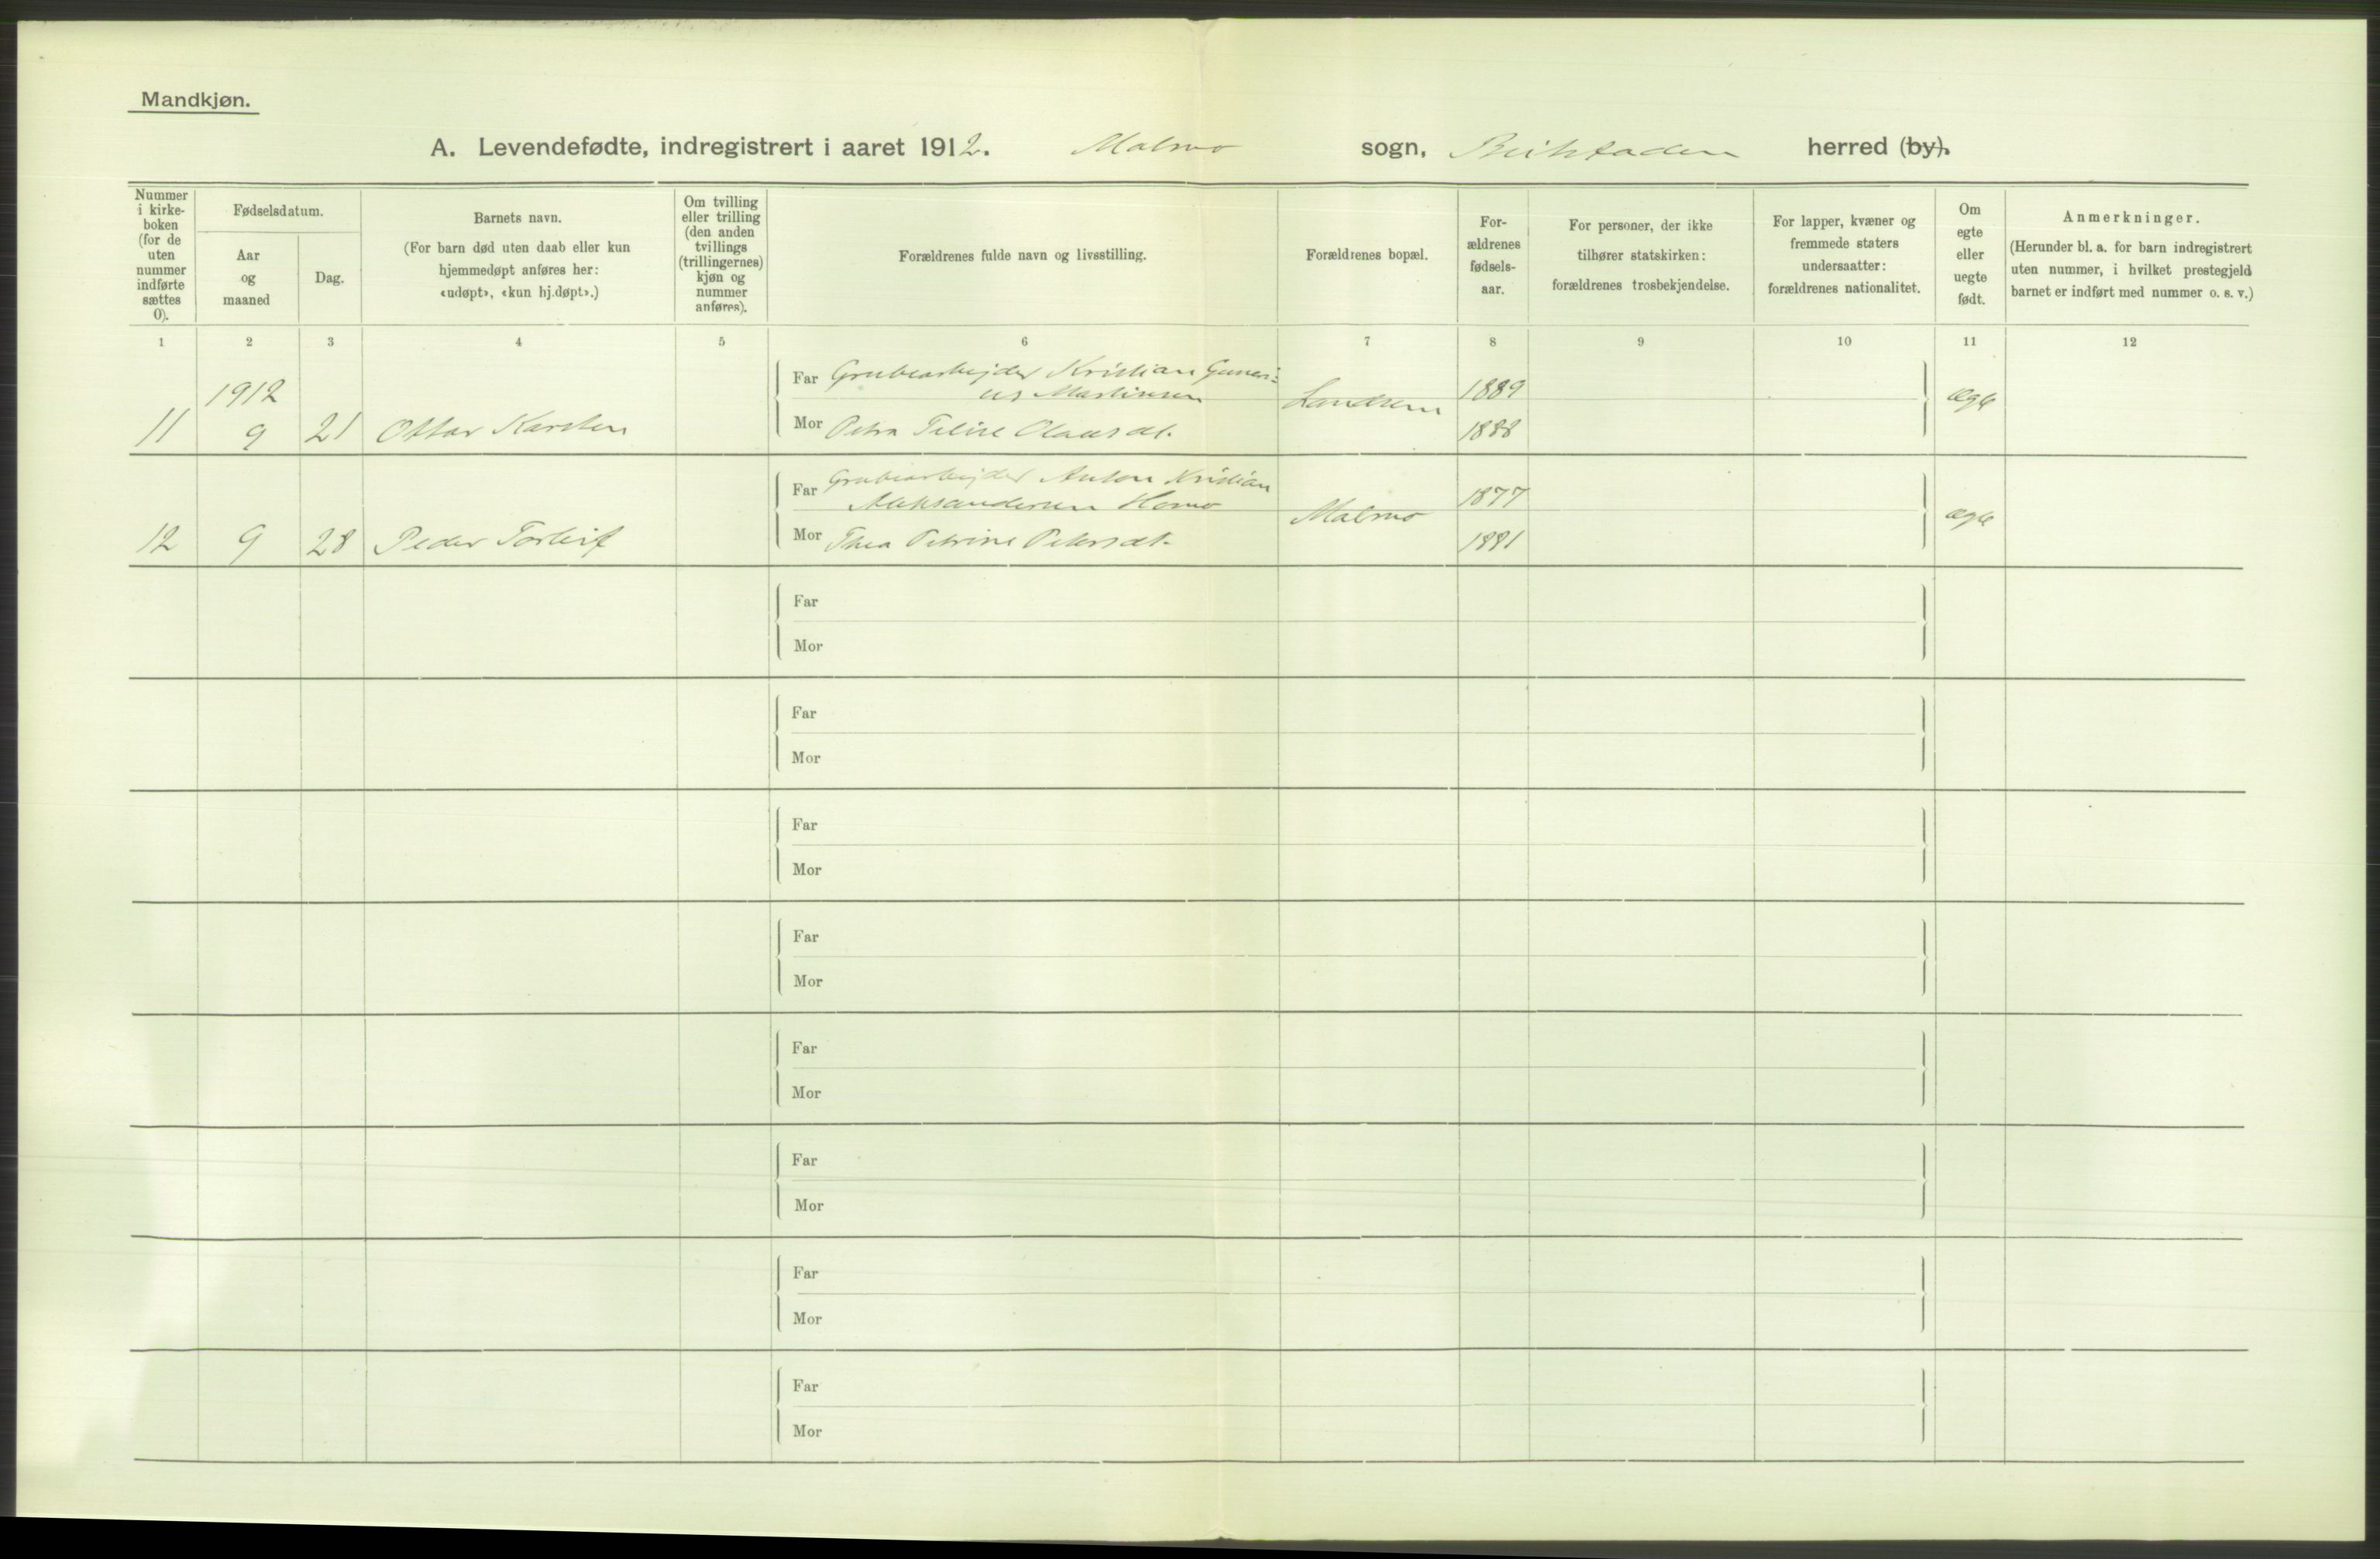 Mandkjøn.
A. Levendefødte, indregistrert i aaret 1912. Malmo sogn, Beitstaden herred (by).
Nummer i kirke- boken (for de uten nummer indførte sættes 0).
Fødselsdatum.
Aar og maaned
Dag.
Barnets navn.
(For barn død uten daab eller kun hjemmedøpt anføres her: «udøpt», «kun hj.døpt».)
Om tvilling eller trilling (den anden tvillings (trillingernes) kjøn og nummer anføres).
Forældrenes fulde navn og livsstilling.
Forældrenes bopæl.
For- ældrenes fødsels- aar.
For personer, der ikke tilhører statskirken: forældrenes trosbekjendelse.
For lapper, kvæner og fremmede staters undersaatter: forældrenes nationalitet.
Om egte eller uegte født.
Anmerkninger.
(Herunder bl. a. for barn indregistrert uten nummer, i hvilket prestegjeld barnet er indført med nummer o. s. v.)
1 2 3 4 5 6 7 8 9 10 11 12
1912
Far Grubearbejder Kristian Guneri-
us Martinsen Landsem 1889 ægte
11 9 21 Ottar Karsten Mor Petra Olausdt. 1888
Far Grubearbejder Anton Kristian
Aleksandersen Homo Malmo 1877 ægte
12 9 28 Peder Torleif Mor Thea Petrine Petersdt. 1881
Far
Mor
Far
Mor
Far
Mor
Far
Mor
Far
Mor
Far
Mor
Far
Mor
Far
Mor